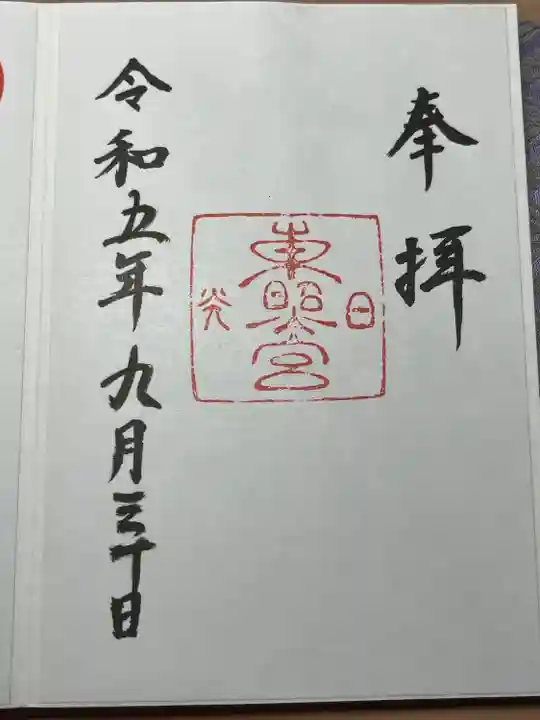 奉拝
日光
東照宮
令和五年九月三十日